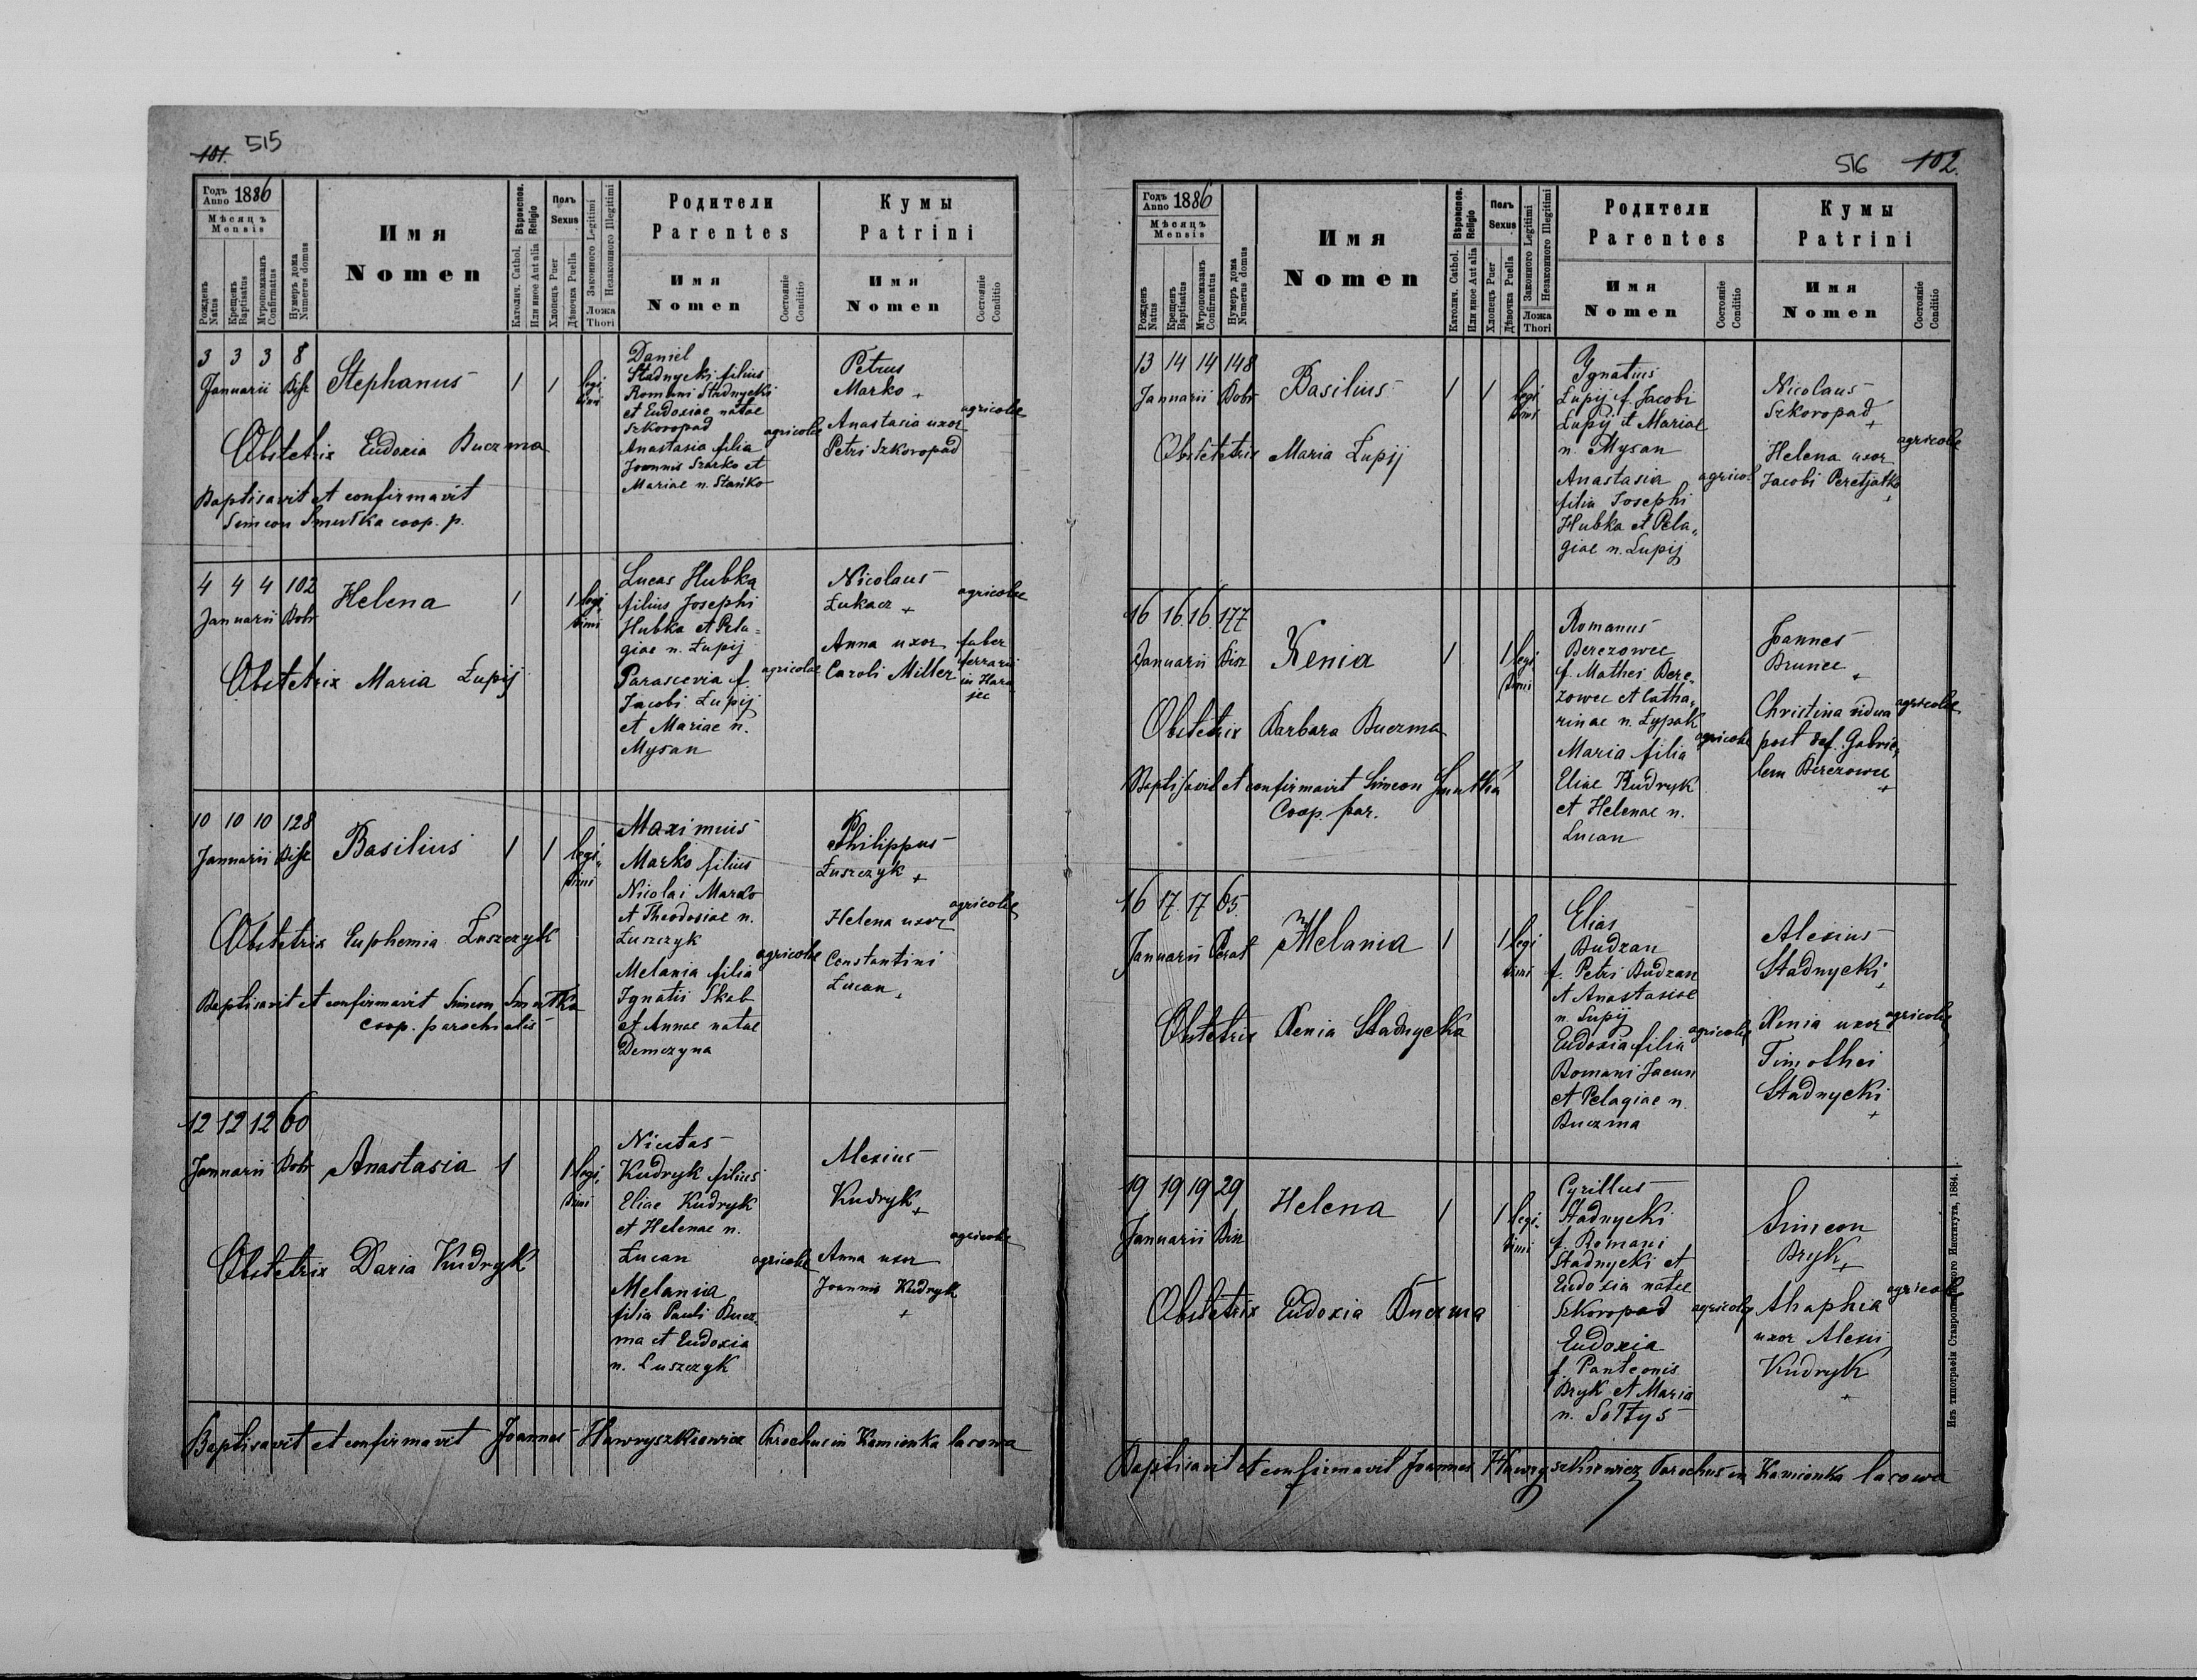 101. 515
Годъ Anno 1886
Мѣсяцъ
Mensis
Рожденъ Natus
Крещенъ Baptisatus
Мѵропомазанъ Confirmatus
Нумеръ дома Numerus domus
Имя
Nomen
Вѣроиспов. Religio
Католич. Cathol.
Или иное Aut alia
Полъ
Sexus
Хлопецъ Puer
Дѣвочка Puella
Законного Legitimi
Незаконного Illegitimi
Ложа
Thori
Родители
Parentes
Имя
Nomen
Состояніе
Conditio
Кумы
Patrini
Имя
Nomen
Состояніе
Conditio
3 3 3 8
Januarii Bisz
Stephanus 1 1 legi
timi
Daniel
Stadnycki filius
Romani Stadnycki
et Eudoxiae natae
Szkoropad
Anastasia filia
Joannis Szarko et
Mariae n. Stańko
agricolae
Petrus
Marko +
Anastasia uxor
Petri Szkoropad
agricolae
Obstetrix Eudoxia Buczma
Baptisavit et confirmavit
Simeon Smutka coop. p.
4 4 4 102
Januarii Bobr
Helena 1 1 legi
timi
Lucas Hubka
filius Josephi
Hubka et Pela=
giae n. Łupij
Parascevia f.
Jacobi Łupij
et Mariae n.
Mysan
agricolae
Nicolaus
Łukacz +
Anna uxor
Caroli Miller
agricolae
faber
ferrari
in Hara
jec
Obstetrix Maria Łupij
10 10 10 128
Januarii Bisz
Basilius 1 1 legi„
timi
Maximus
Marko filius
Nicolai Marko
et Theodosiae n.
Łuszczyk
Melania filia
Ignatii Skab
et Annae natae
Demczyna
agricolae
Philippus
Łuszczyk +
Helena uxor
Constantini
Łucan
agricolae
Obstetrix Euphemia Łuszczyk
Baptisavit et confirmavit Simeon Smutka
coop. parochialis
12 12 12 60
Januarii Bobr
Anastasia 1 1 legi,
timi
Nicetas
Kudryk filius
Eliae Kudryk
et Helenae n.
Łucan
Melania
filia Pauli Bucz,
ma et Eudoxia
n. Luszczyk
agricolae
Alexius
Kudryk +
Anna uxor
Joannis Kudryk
+
agricolae
Obstetrix Daria Kudryk
Baptisavit et confirmavit Joannes Hawryszkiewicz Parochus in Kamionka lasowa
516 102.
Годъ Anno 1886
Мѣсяцъ
Mensis
Рожденъ Natus
Крещенъ Baptisatus
Мѵропомазанъ Confirmatus
Нумеръ дома Numerus domus
Имя
Nomen
Вѣроиспов. Religio
Католич. Cathol.
Или иное Aut alia
Полъ
Sexus
Хлопецъ Puer
Дѣвочка Puella
Законного Legitimi
Незаконного Illegitimi
Ложа
Thori
Родители
Parentes
Имя
Nomen
Состояніе
Conditio
Кумы
Patrini
Имя
Nomen
Состояніе
Conditio
13 14 14 148
Januarii Bobr
Basilius 1 1 legi
timi
Ygnatius
Łupij f. Jacobi
Łupij et Mariae
n. Mysan
Anastasia
filia Josephi
Hubka et Pela„
giae n. Łupij
agricol
Nicolaus
Szkoropad
+
Helena uxor
Jacobi Peretjatko
+
agricolae
Obstetetrix Maria Łupij
16 16 16 177
Januarii Bisz
Xenia 1 1 legi
timi
Romanus
Berezowec
f. Mathei Bere,
zowec et Catha,
rinae n. Łypak
Maria filia
Eliae Kudryk
et Helenae n.
Łucan
agricolae
Joannes
Brunec
+
Christina vidua
post def. Gabrie„
lem Berezowec
+
agricolae
Obstetrix Barbara Buczma
Baptisavit et confirmavit Simeon Smutka
Coop. par.
16 17 17 65.
Januarii Perat
Melania 1 1 legi
timi
Elias
Budzan
f. Petri Budzan
et Anastasiae
n. Łupij
Eudoxia filia
Romani Jacun
et Pelagiae n.
Buczma
agricolae
Alexius
Stadnycki
+
Xenia uxor
Timothei
Stadnycki
+
agricolae
Obstetrix Xenia Stadnycka
19 19 19 29
Januarii Bisz
Helena 1 1 legi.
timi
Cyrillus
Stadnycki
f. Romani
Stadnycki et
Eudoxia natae
Szkoropad
Eudoxia
f. Panteonis
Bryk et Maria
n. Sołtys
agricolae
Simeon
Bryk +
Ahaphia
uxor Alexii
Kudryk
+
agricolae
Obstetrix Eudoxia Buczma
Baptisavit et confirmavit Joannes Hawryszkiewicz Parochus in Kamionka lasowa
Изъ типографіи Ставропигійского Института, 1884.